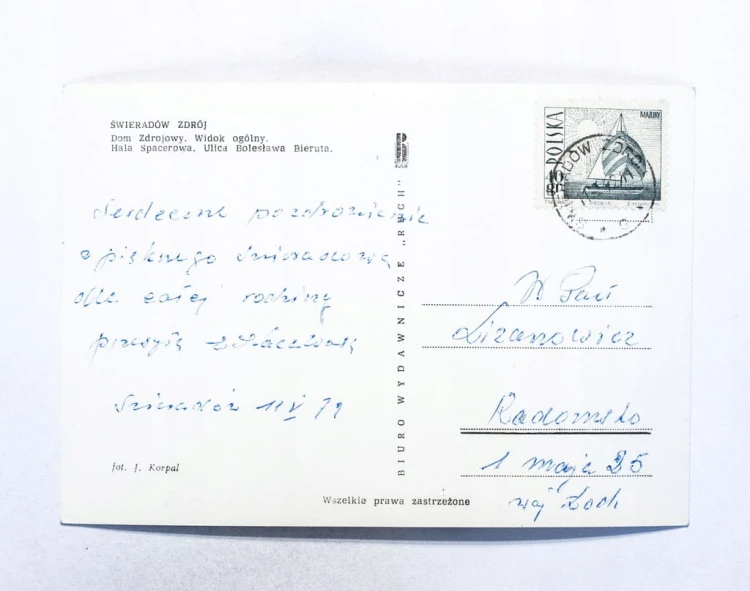 ŚWIERADÓW ZDRÓJ
Dom Zdrojowy. Widok ogólny.
Hala Spacerowa. Ulica Bolesława Bieruta.
Serdeczne pozdrowienia
z pięknego Świeradowa
dla całej rodziny
przesyła
11 V 79
fot. J. Korpal
BIURO WYDAWNICZE „RUCH"
Wszelkie prawa zastrzeżone
POLSKA
MAZURY
40 gr
ZDRÓJ
W Pani
Lizanowicz
Radomsko
1 maja 25
woj Łódź